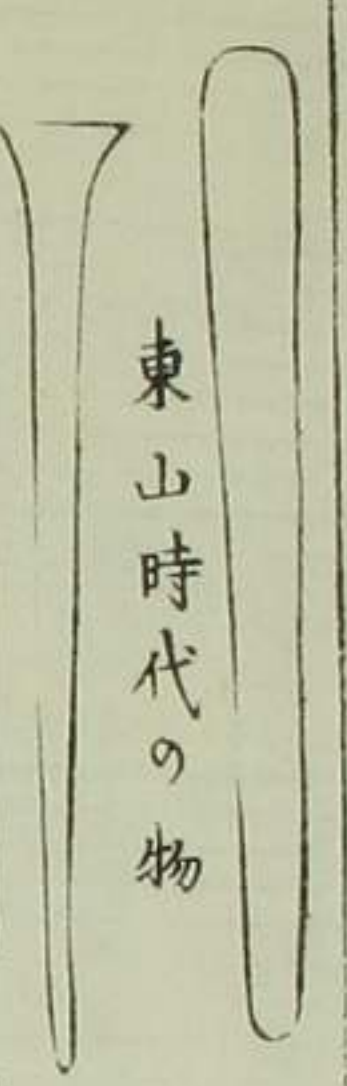 東山時代の物